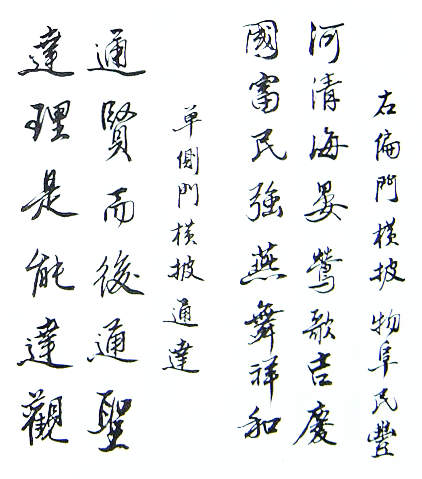 右偏門横披 物阜民豐
河清海晏鶯歌吉慶
國富民強燕舞祥和
单側門横披 通達
通賢而後通聖
達理是能達觀